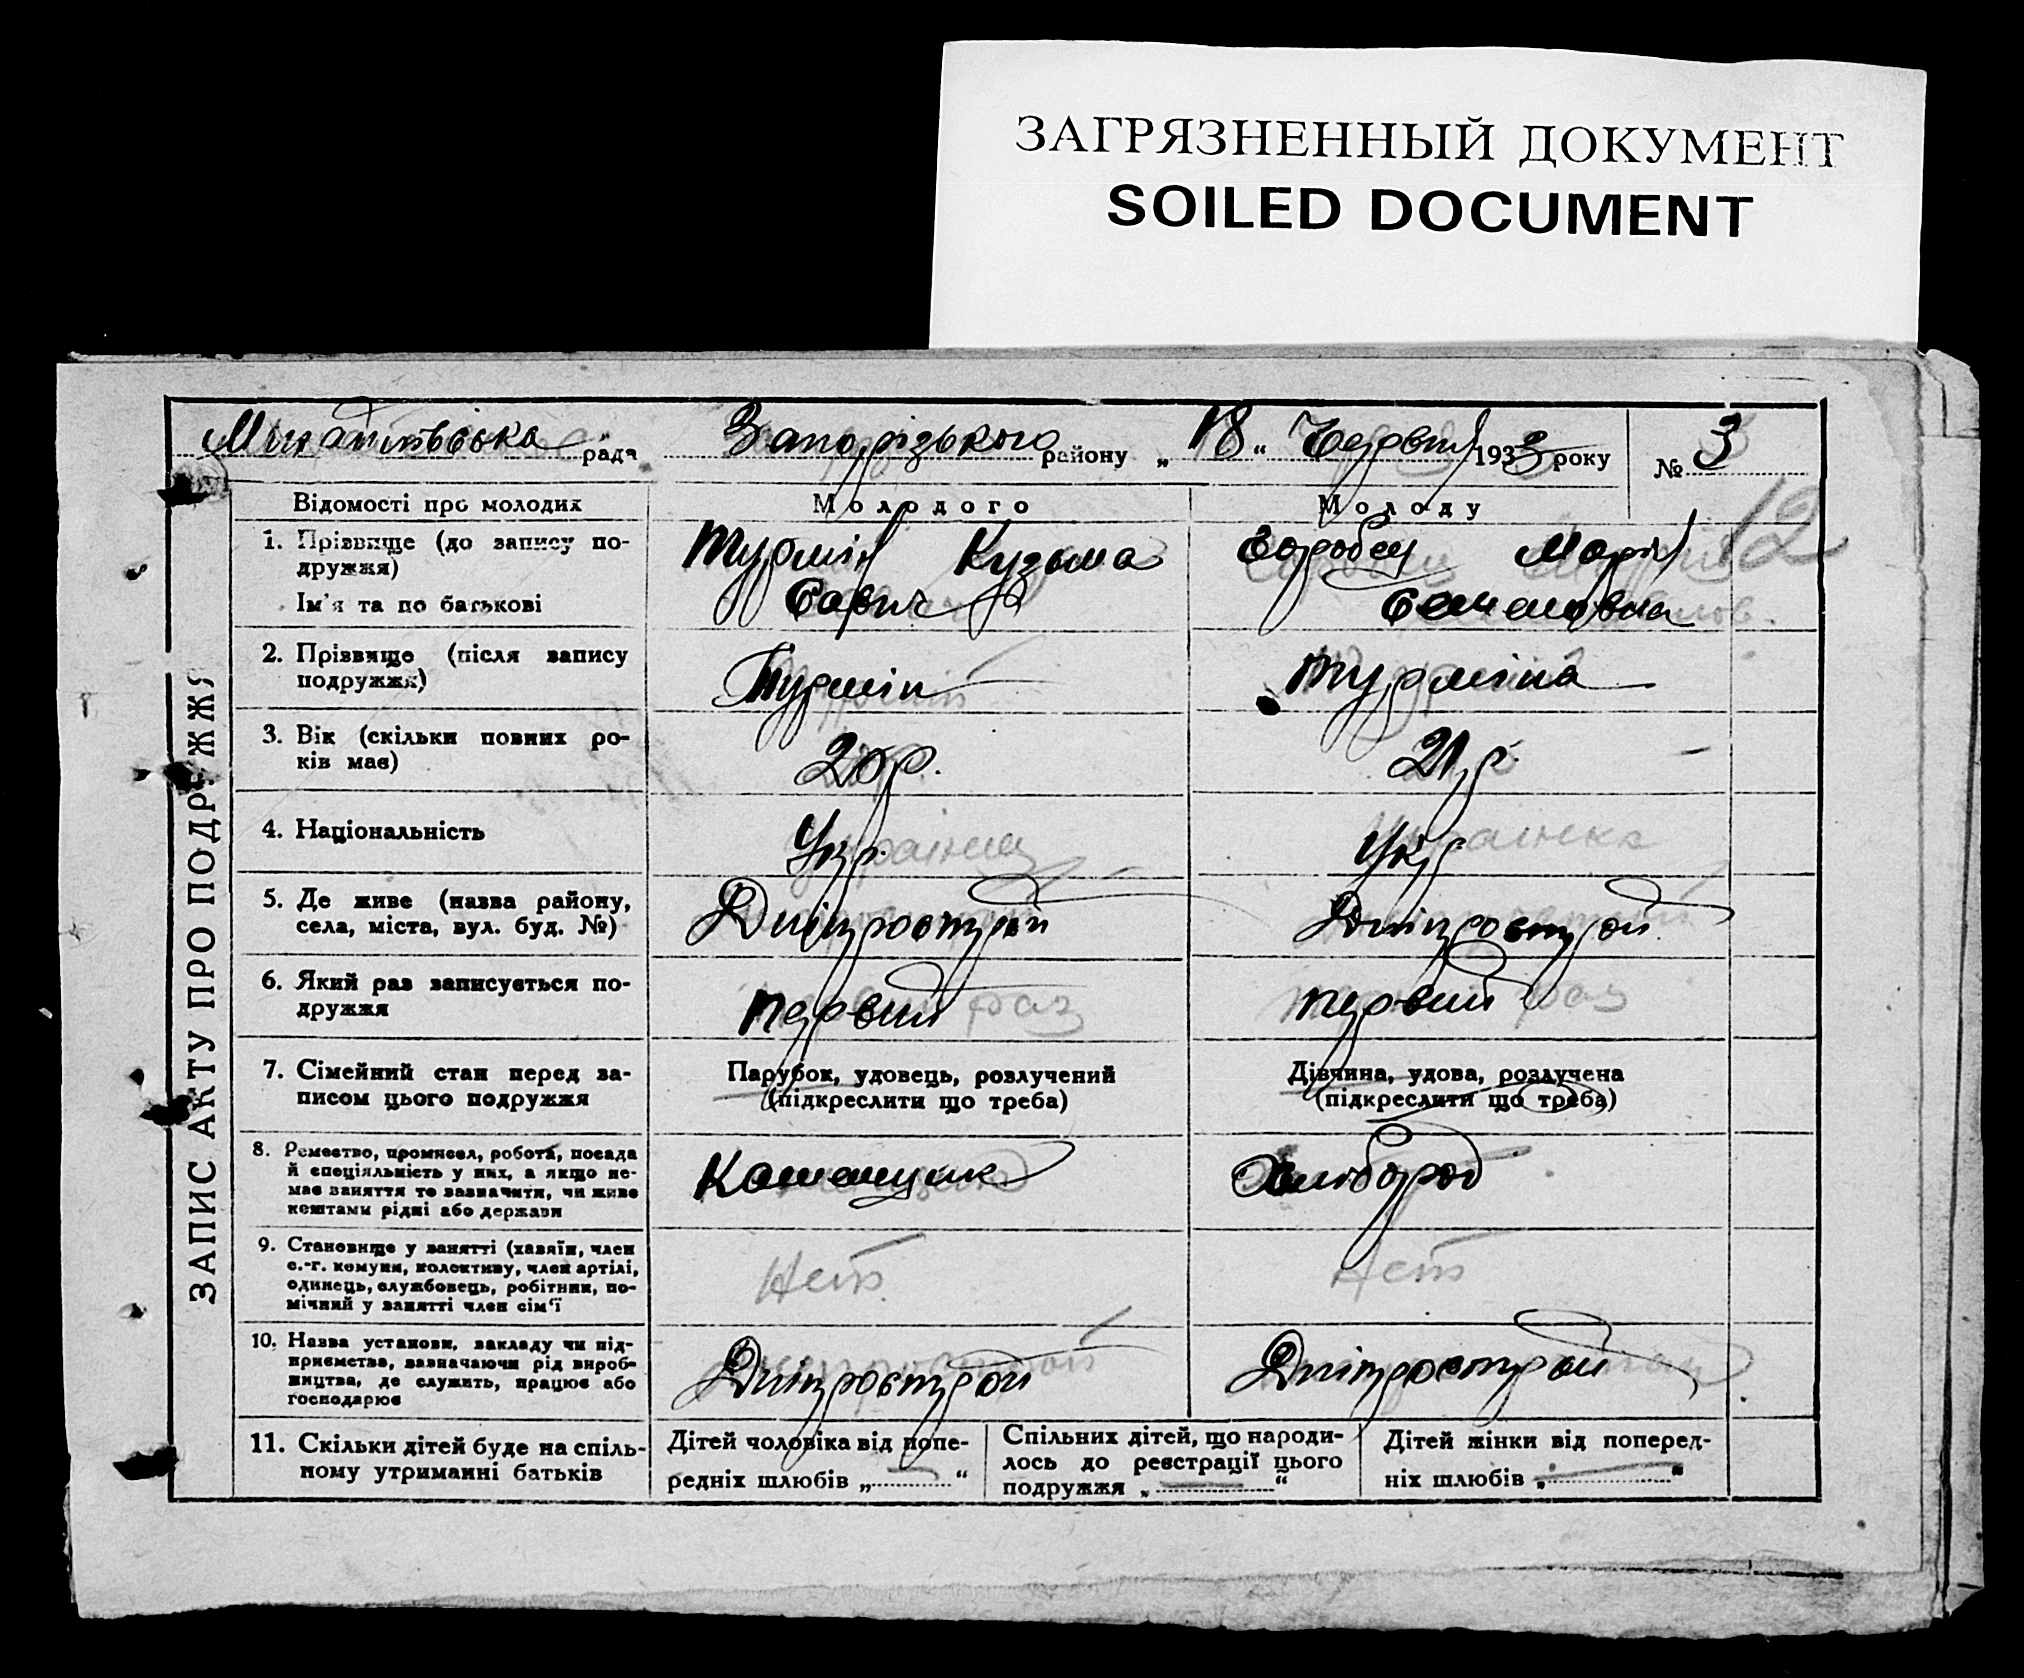 ЗАГРЯЗНЕННЫЙ ДОКУМЕНТ
SOILED DOCUMENT
рада Запорізького району „18“ Червня 1933 року № 3
12
ЗАПИС АКТУ ПРО ПОДРУЖЖЯ
Відомості про молодих Молодого Молоду
1. Прізвище (до запису по-
дружжя)
Ім'я та по батькові
Турмін Кузьма
Савич
Марія
Семеновна
2. Прізвище (після запису
подружжя)
Турмін
Турміна
3. Вік (скільки повних ро-
ків має)
20 р.
21 р.
4. Національність
Укр.
Укр.
5. Де живе (назва району,
села, міста, вул. буд. №)
Дніпрострой
Дніпрострой
6. Який раз записується по-
дружжя
первий
первий
7. Сімейний стан перед за-
писом цього подружжя
Парубок, удовець, розлучений
(підкреслити що треба)
Дівчина, удова, розлучена
(підкреслити що треба)
8. Ремество, промисел, робота, посада
й спеціяльність у них, а якщо не-
має заняття то зазначити, чи живе
коштами рідні або держави
Каменщик
Хлібороб
9. Становище у занятті (хазяїн, член
с.-г. комуни, колективу, член артілі,
одинець, службовець, робітник, по-
мічний у занятті член сім'ї
Нет
Нет
10. Назва установи, закладу чи під-
приємства, зазначаючи рід вироб-
ництва, де служить, працює або
господарює
Дніпрострой
Дніпрострой
11. Скільки дітей буде на спіль-
ному утриманні батьків
Дітей чоловіка від попе-
редніх шлюбів „ “
Спільних дітей, що народи-
лось до реєстрації цього
подружжя „ “
Дітей жінки від поперед-
ніх шлюбів „ “